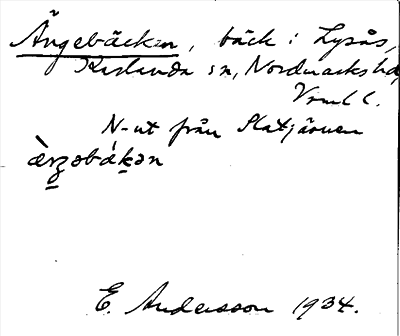 Ängebäcken, bäck i Lysås,
Karlanda sn, Nordmarks hd,
Vrml l.
N-ut från Slatjärnen
E. Andersson 1934.